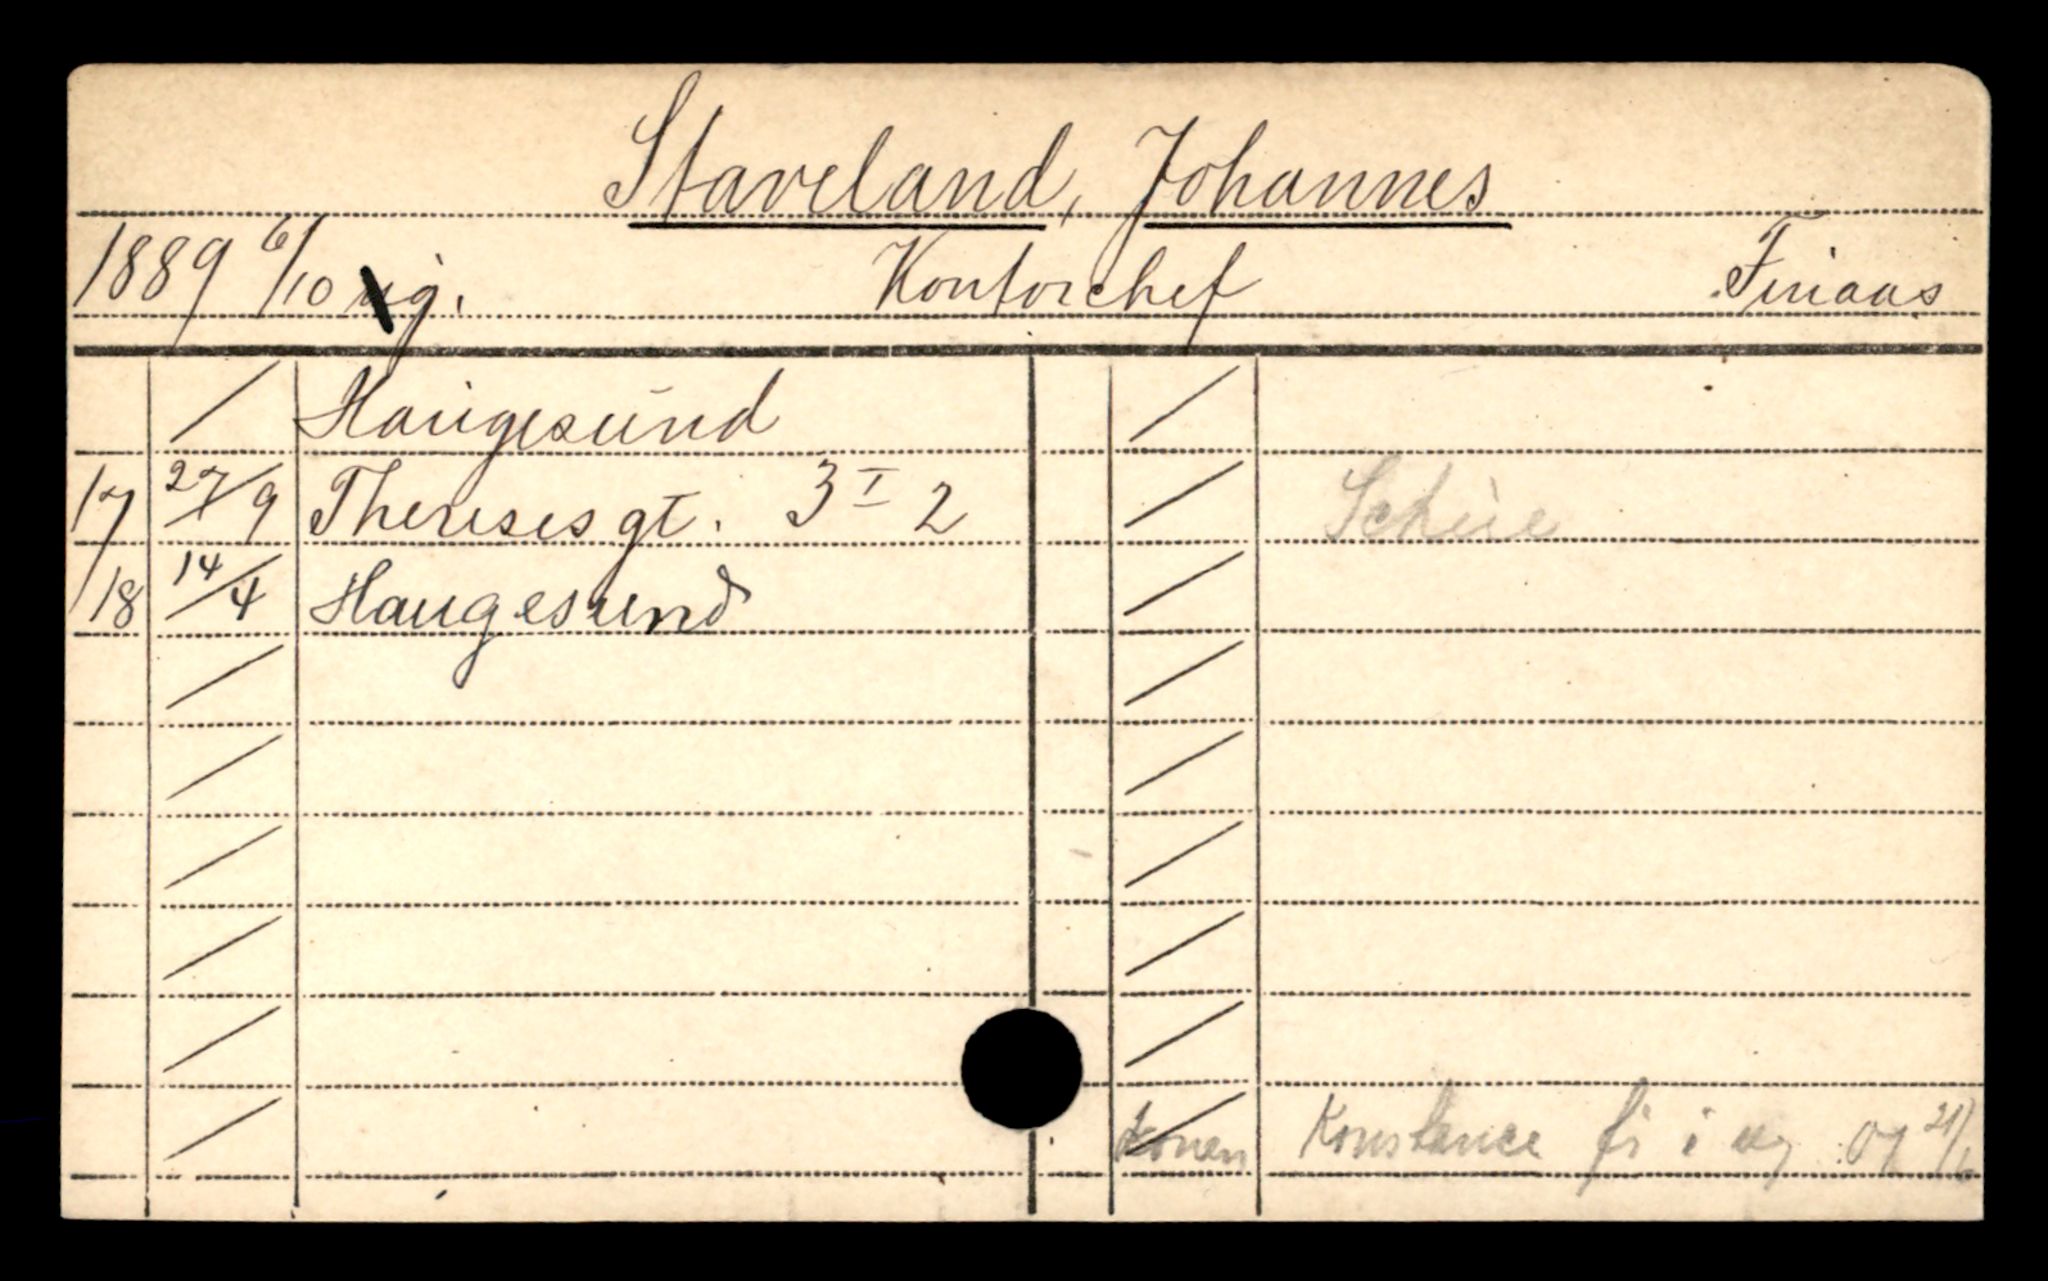 Staveland, Johannes
1889 6/10 ug. Kontorchef Finaas
Haugesund
17 27/9 Theresesgt. 3 I 2 Schue
18 14/4 Haugesund
konen Konstance fr i ug 07 21/